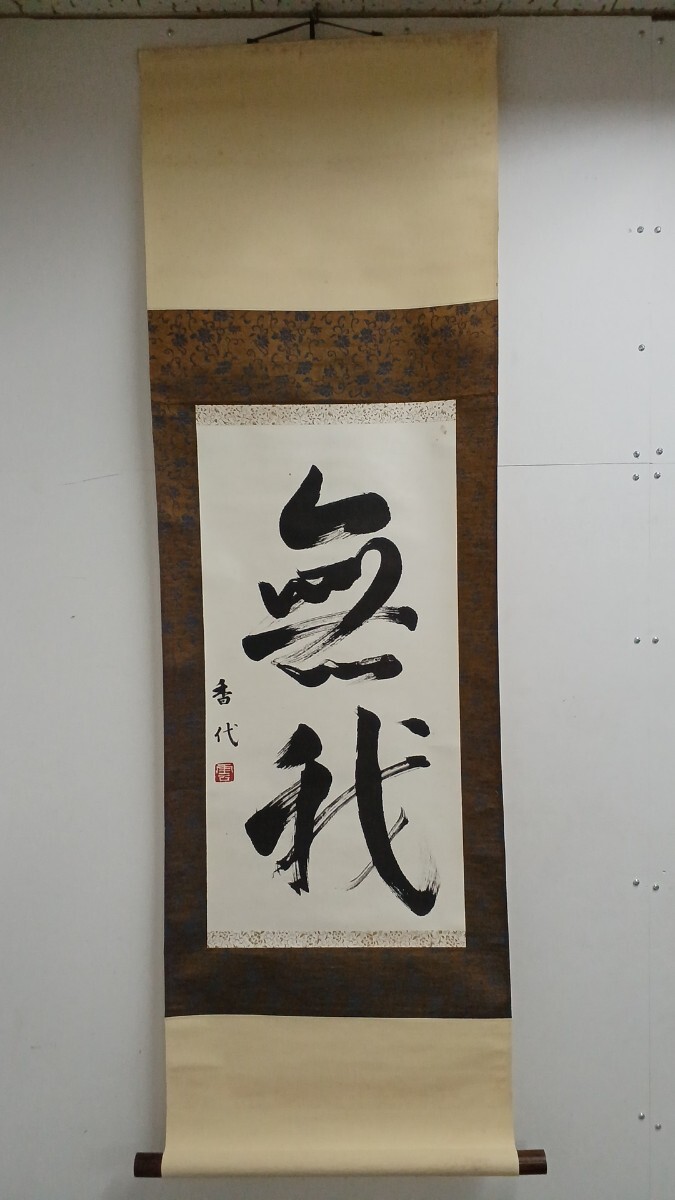 無我
香代